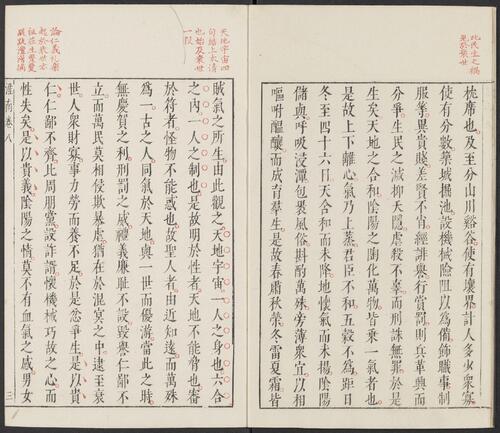 此民生之禍
見於衰世
枕席也及至分山川谿谷使有壤界計人多少眾寡
使有分數築城掘池設機械險阻以為備飾職事制
服等異貴賤差賢不肖經誹譽行賞罰則兵革興而
分爭生民之滅抑夭隱虐殺不辜而刑誅無罪於是
生矣天地之合和陰陽之陶化萬物皆乘一氣者也
是故上下離心氣乃上蒸君臣不和五穀不為距日
冬至四十六日天含和而未降地懷氣而未揚陰陽
儲與呼吸浸潭包裹風俗斟酌萬殊旁薄眾宜以相
嘔咐醞釀而成育群生是故春肅秋榮冬雷夏霜皆
天地宇宙四
句結上文清
也始及衰世
一段
賊氣之所生由此觀之天地宇宙一人之身也六合
之內一人之制也是故明於性者天地不能脅也審
於符者怪物不能惑也故聖人者由近知遠而萬殊
為一古之人同氣於天地與一世而優游當此之時
無慶賀之利刑罰之威禮義廉恥不設毀譽仁鄙不
立而萬民莫相侵欺暴虐猶在於混冥之中逮至衰
世人眾財寡事力勞而養不足於是忿爭生是以貴
仁仁鄙不齊比周朋黨設詐諝懷機械巧故之心而
性失矣是以貴義陰陽之情莫不有血氣之感男女
論仁義禮樂
起於衰世亦
祖莊生聱聱
淮南卷八
三